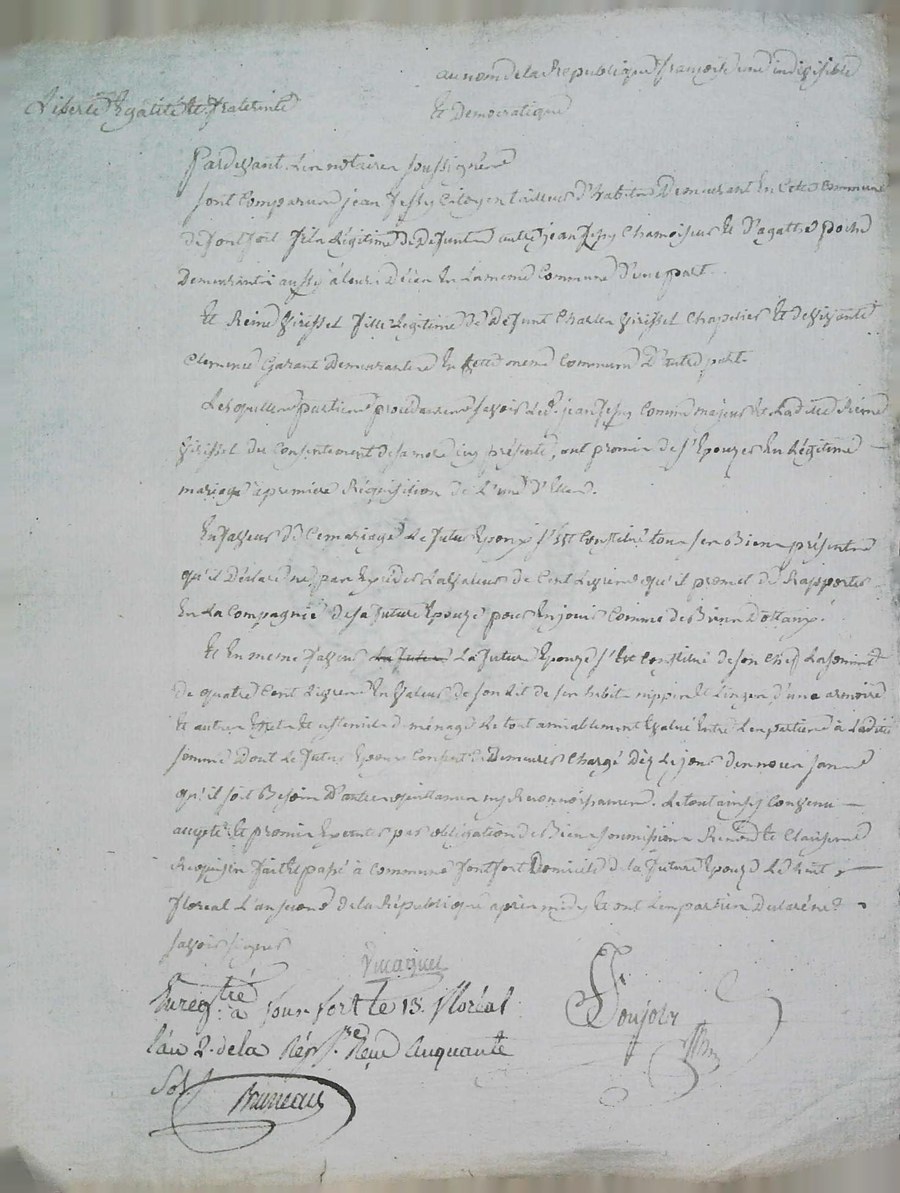 au nom de la Republique françoise une indivisible
Liberté Egalité et fraternité
Et Democratique
Pardevant Les notaires soussignés
sont Comparus jean Jussy Citoyen tailleur d'habits Demeurant En Cette Commune
de font fort fils Légitime de Defunts autre jean Jussy Chamoiseur Et d'agatte
Demeurants aussy à leurs Décès En La meme Commune D'une part.
Et Reine Virissel fille Legitime de Defunt Charles Virissel Chapelier Et de vivante
Clemence Garant Demeurante En cette meme Commune D'autre part.
Lesquelles parties procedantes savoir Led. jean Jussy Comme majeur et Ladite Reine
Virissel du Consentement de sa mere icy présente, ont promis de s'Epouzer En Légitime
mariage à premiere Réquisition de L'une d'Elles.
En faveur de Ce mariage Le futur Epoux s'est Constitué tous ses Biens présents
qu'il Déclare ne pas Exceder La valeur de Cent Livres qu'il promet de Rapporter
En La Compagnie de sa future Epouze pour En jouir Comme de Biens Dottaux.
Et En meme faveur La futur La future Epouze s'est Constitué de son Chef La somme
de quatre Cent Livres En valeur de son Lit de ses habits nippes Et Linges d'une armoire
Et autres Effets Et ustenciles d ménage Le tout amiablement Evalué Entre Les parties à Ladite
somme Dont Le futur Epoux Consent Demeurer Chargé Dèz Le jour des noces sans
qu'il soit Besoin D'autre quittance ny Reconnoissance. Le tout ainsy Convenu
accepté Et promis Executer par obligation de Biens soumissions Renon. Et Clauses
Requises fait Et passé à Commune font fort Domicile d la future Epouze Le huit
floreal L'an second de la République après midy Et ont Les parties Declaré ne
savoir signer
Enregtré à font fort le 13. floréal
l'an 2. de la Rép. Reçu Cinquante
Sols
Goujon
Bruneau